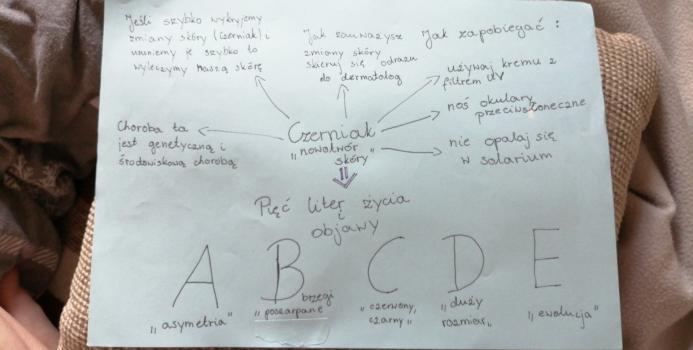 Jeśli szybko wykryjemy
zmiany skóry (czerniak) i
usuniemy je szybko to
wyleczymy naszą skórę
Jak zauważysz
zmiany skóry
skieruj się odrazu
do dermatolog
Jak zapobiegać :
używaj kremu z
filtrem UV
noś okulary
przeciwsłoneczne
nie opalaj się
w solarium
Choroba ta
jest genetyczną i
środowiskową chorobą
Czerniak
"nowotwór
skóry"
Pięć liter życia
i
objawy
A B C D E
"asymetria"
brzegi
"poszarpane"
"czerwony,
czarny"
"duży
rozmiar"
"ewolucja"